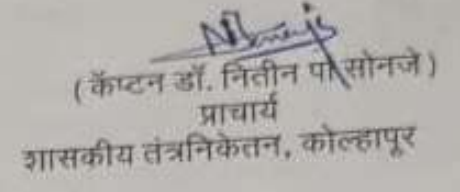 (कॅप्टन डॉ. नितीन पां सोनजे)
प्राचार्य
शासकीय तंत्रनिकेतन, कोल्हापूर